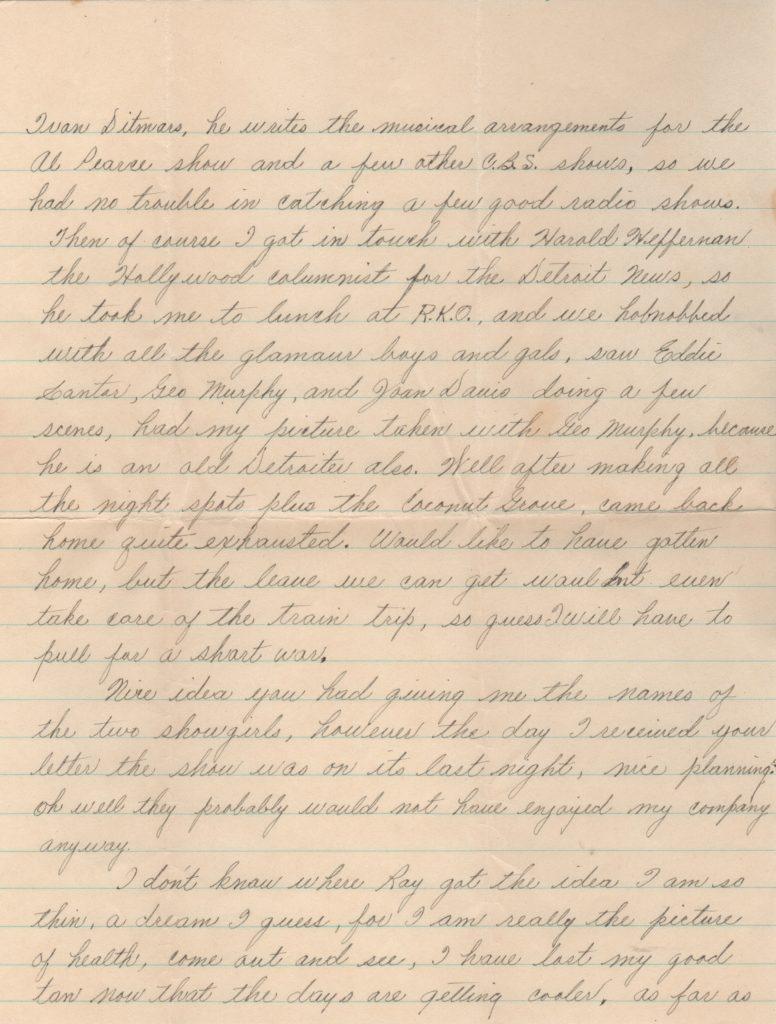 Ivan Ditmars, he writes the musical arrangements for the
Al Pearce show and a few other C.B.S. shows, so we
had no trouble in catching a few good radio shows.
Then of course I got in touch with Harold Heffernan
the Hollywood columnist for the Detroit News, so
he took me to lunch at R.K.O., and we hobnobbed
with all the glamour boys and gals, saw Eddie
Cantor, Geo Murphy, and Joan Davis doing a few
scenes, had my picture taken with Geo Murphy, because
he is an old Detroiter also. Well after making all
the night spots plus the Coconut Grove, came back
home quite exhausted. Would like to have gotten
home, but the leave we can get wouldn't even
take care of the train trip, so guess I will have to
pull for a short war.
Nice idea you had giving me the names of
the two showgirls, however the day I received your
letter the show was on its last night, nice planning.
oh well they probably would not have enjoyed my company
anyway.
I don't know where Ray got the idea I am so
thin, a dream I guess, for I am really the picture
of health, come out and see, I have lost my good
tan now that the days are getting cooler, as far as